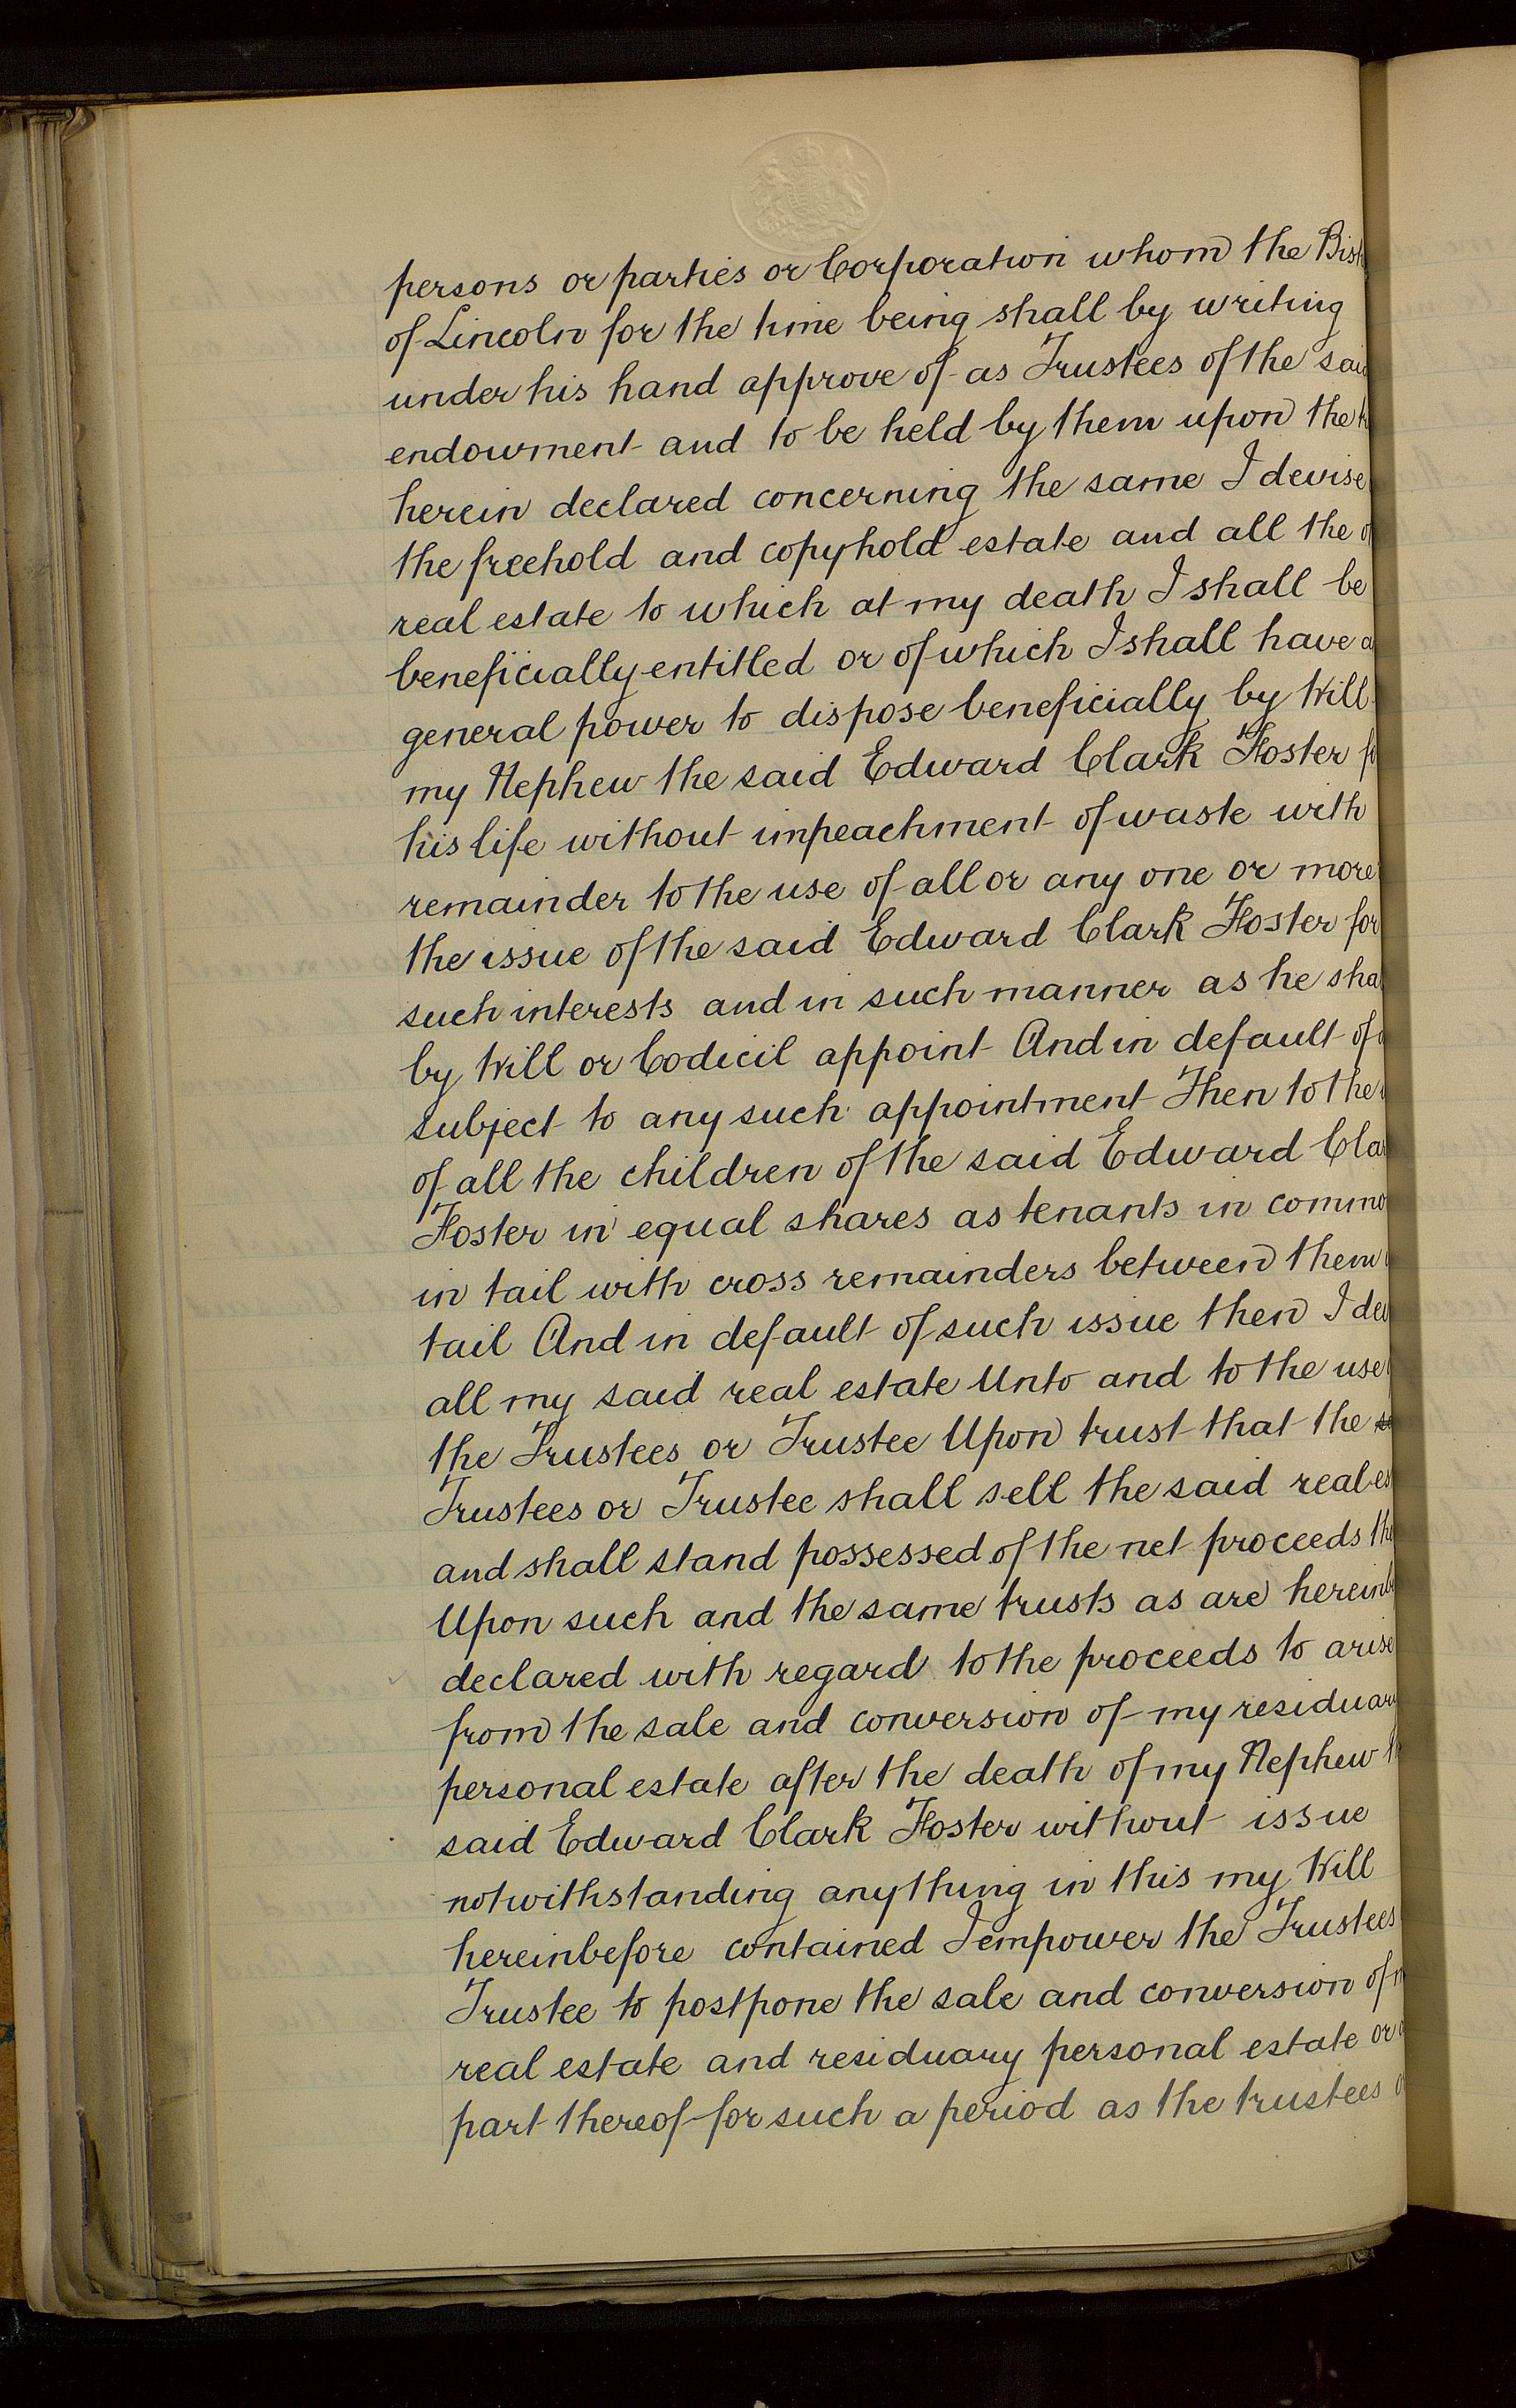 persons or parties or Corporation whom the Bish
of Lincoln for the time being shall by writing
under his hand approve of as Trustees of the said
endowment and to be held by them upon the
herein declared concerning the same I devise
the freehold and copyhold estate and all the
real estate to which at my death I shall be
beneficially entitled or of which I shall have a
general power to dispose beneficially by Will
my Nephew the said Edward Clark Foster
his life without impeachment of waste with
remainder to the use of all or any one or more
the issue of the said Edward Clark Foster for
such interests and in such manner as he sha
by Will or Codicil appoint And in default of
subject to any such appointment Then to the
of all the children of the said Edward Cla
Foster in equal shares as tenants in commo
in tail with cross remainders between them
tail And in default of such issue then I dev
all my said real estate Unto and to the use
the Trustees or Trustee Upon trust that the
Trustees or Trustee shall sell the said real es
and shall stand possessed of the net proceeds the
Upon such and the same trusts as are hereinb
declared with regard to the proceeds to arise
from the sale and conversion of my residuary
personal estate after the death of my Nephew
said Edward Clark Foster without issue
notwithstanding anything in this my Will
hereinbefore contained I empower the Trustees
Trustee to postpone the sale and conversion of
real estate and residuary personal estate or
part thereof for such a period as the trustees